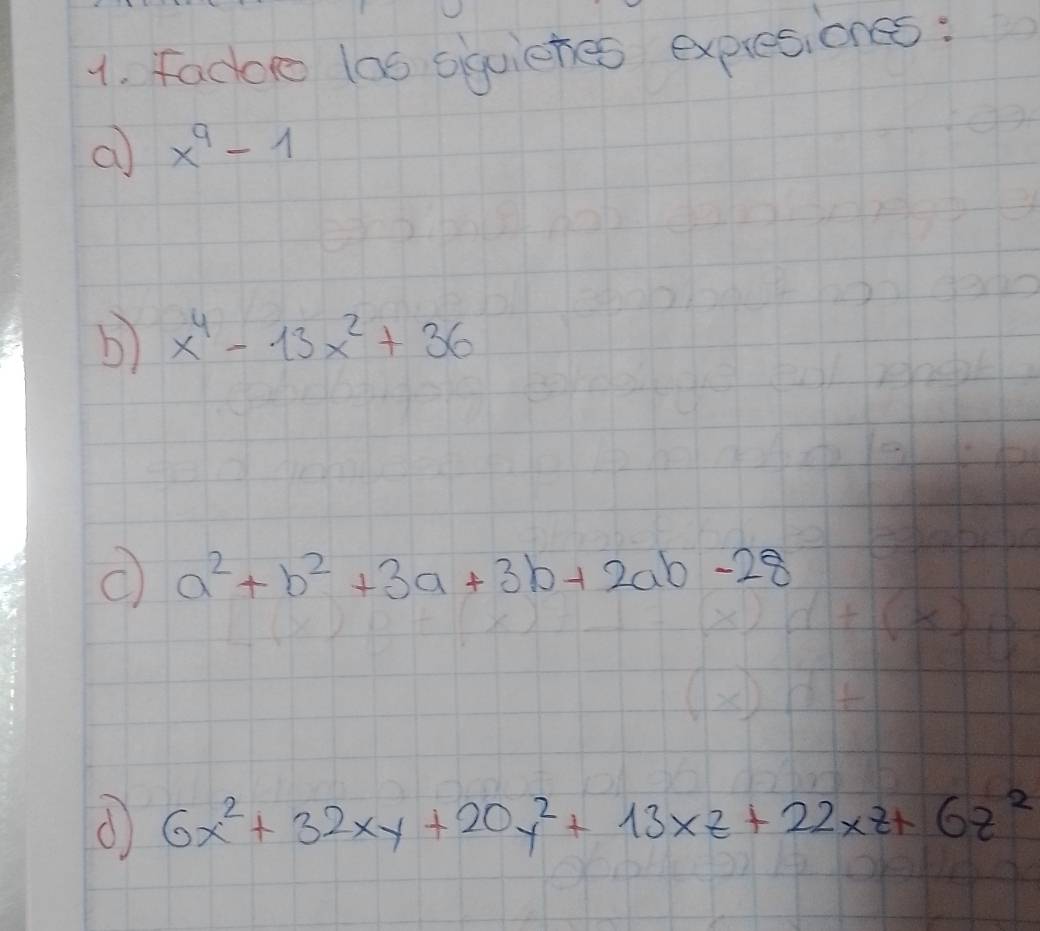 1. Factore las siguientes expresiones:
a) x⁹ - 1
b) x⁴ - 13x² + 36
c) a² + b² + 3a + 3b + 2ab - 28
d) 6x² + 32xy + 20y² + 13xz + 22xz + 6z²